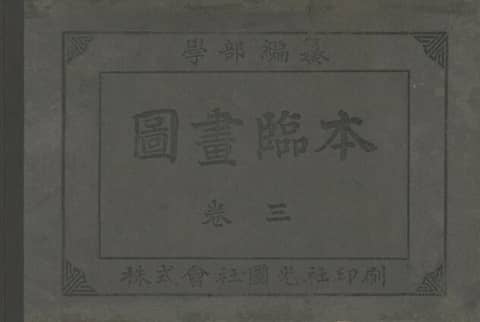 學部編纂
圖畫臨本
卷三
株式會社國光社印刷